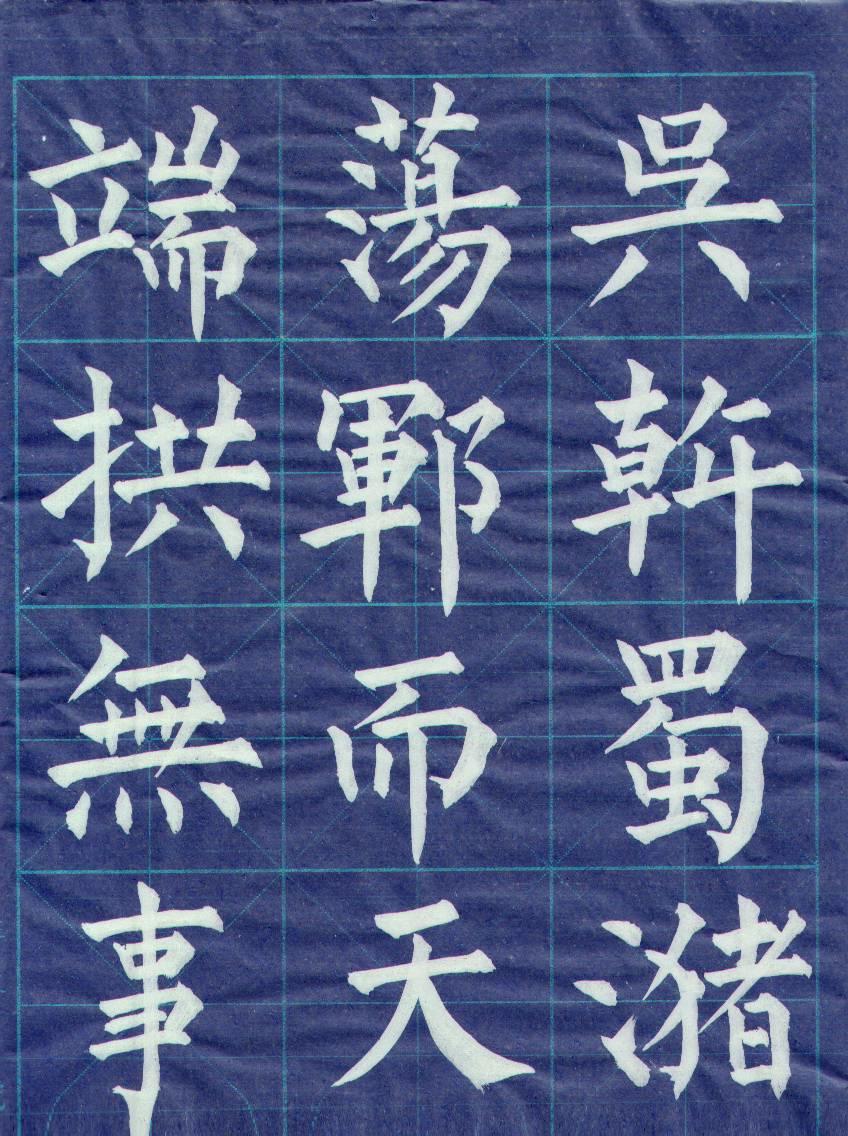 吳斡蜀潴
蕩鄆而天
端拱無事